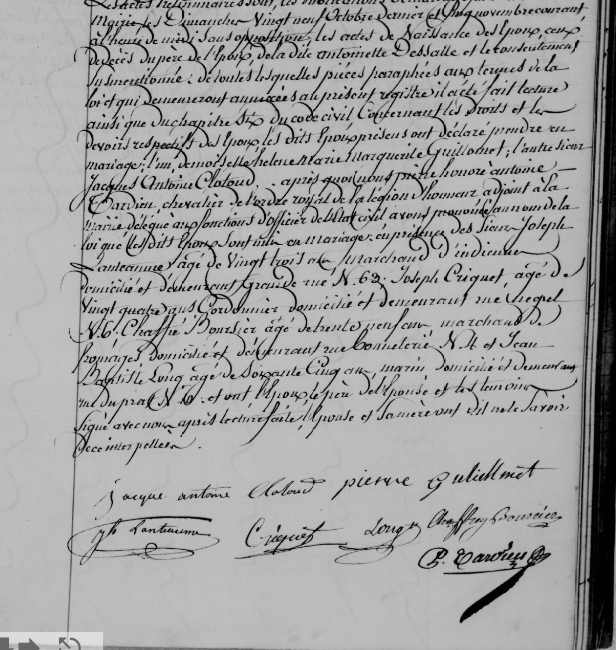 Mairie les Dimanches Vingt neuf Octobre dernier et Cinq novembre courant
à l'heure de midi sans opposition; les actes de Naissance des Epoux, ceux
de décès du père de l'Epoux, de la dite antoinette Dessalle et le consentement
susmentionné; de toutes lesquelles pièces paraphées aux termes de la
loi et qui demeureront annexées au présent registre il a été fait lecture
ainsi que du chapitre Six du code civil Concernant les droits et les
devoirs respectifs des Epoux les dits Epoux présens ont déclaré prendre en
mariage; l'un demoiselle helene Marie Marguerite Guillomet; l'autre sieur
Jacques Antoine Clotoud . après quoi nous pierre honoré antoine
Tardieu, chevalier de l'ordre royal de la légion d'honneur adjoint à la
mairie délégué aux fonctions d'officier de l'état civil avons prononcé au nom de la
loi que les dits Epoux sont unis en mariage; en présence des sieurs Joseph
Lanteaume agé de Vingt trois ans marchand d'indienne
domicilié et demeurant Grande rue N. 62; Joseph Criquet agé de
Vingt quatre ans Cordonnier domicilié et demeurant rue
N. 6; Chaffré Boursier âgé de trente neuf ans, marchand de
fromages domicilié et demeurant rue Bonneterie N. 4 et Jean
Baptiste Long agé de soixante Cinq ans, marin domicilié et demeurant
rue du prat N. 6. et ont l'Epoux le père de l'Epouse et les temoins
signé avec nous après lecture faite, l'Epouse et sa mère ont dit ne le savoir
de ce interpellées .
jacque antoine Clotoud pierre guliellmet
jh Lanteaume Criquet Long Chaffrey Boursier
P. Tardieu